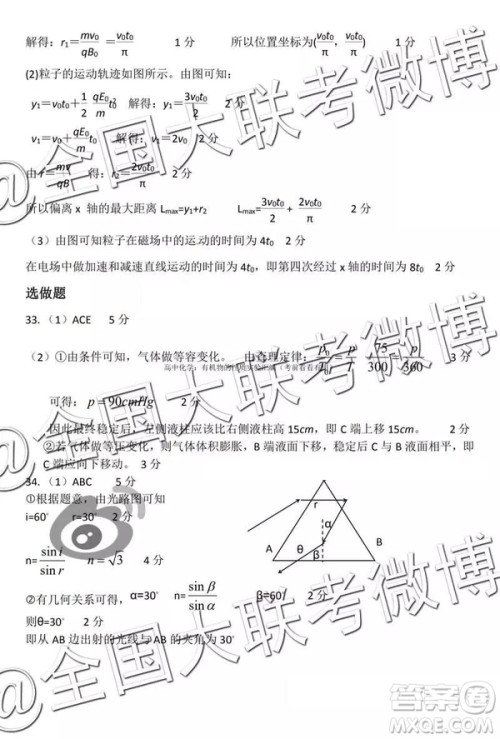 解得：r₁=mv₀/qB₀=v₀t₀/π 1分 所以位置坐标为(v₀t₀/π, v₀t₀/π) 1分
(2)粒子的运动轨迹如图所示。由图可知：
y₁=v₀t₀+1/2 qE₀/m t₀² 解得：y₁=3v₀t₀/2 2分
v₁=v₀+qE₀/m t₀ 解得：v₁=2v₀ 2分
由r=mv/qB 得：r₂=2v₀t₀/π 2分
所以偏离 x 轴的最大距离 Lmax=y₁+r₂ Lmax=3v₀t₀/2+2v₀t₀/π 2分
（3）由图可知粒子在磁场中的运动的时间为 4t₀ 2分
在电场中做加速和减速直线运动的时间为 4t₀，即第四次经过 x 轴的时间为 8t₀ 2分
选做题
33.（1）ACE 5分
（2）①由条件可知，气体做等容变化。 由查理定律：p₀/T₀=p/T 75/300=p/360 3分
可得：p=90cmHg 2分
因此最终稳定后，左侧液柱应该比右侧液柱高 15cm，即 C 端上移 15cm。 2分
②若气体做等压变化，则气体体积膨胀，B 端液面下移，稳定后 B 与 C 液面相平，即
C 端应向下移动。 3分
34.（1）ABC 5分
①根据题意，由光路图可知
i=60° r=30° 2分
n=sin i/sin r n=√3 4分
②有几何关系可得，α=30° n=sin β/sin α β=60° 2分
则θ=30° 2分
即从 AB 边出射的光线与 AB 边的夹角为 30°
r
α
A θ β B
@全国大联考微博
@全国大联考微博
@全国大联考微博
答案圈
MXQE.COM